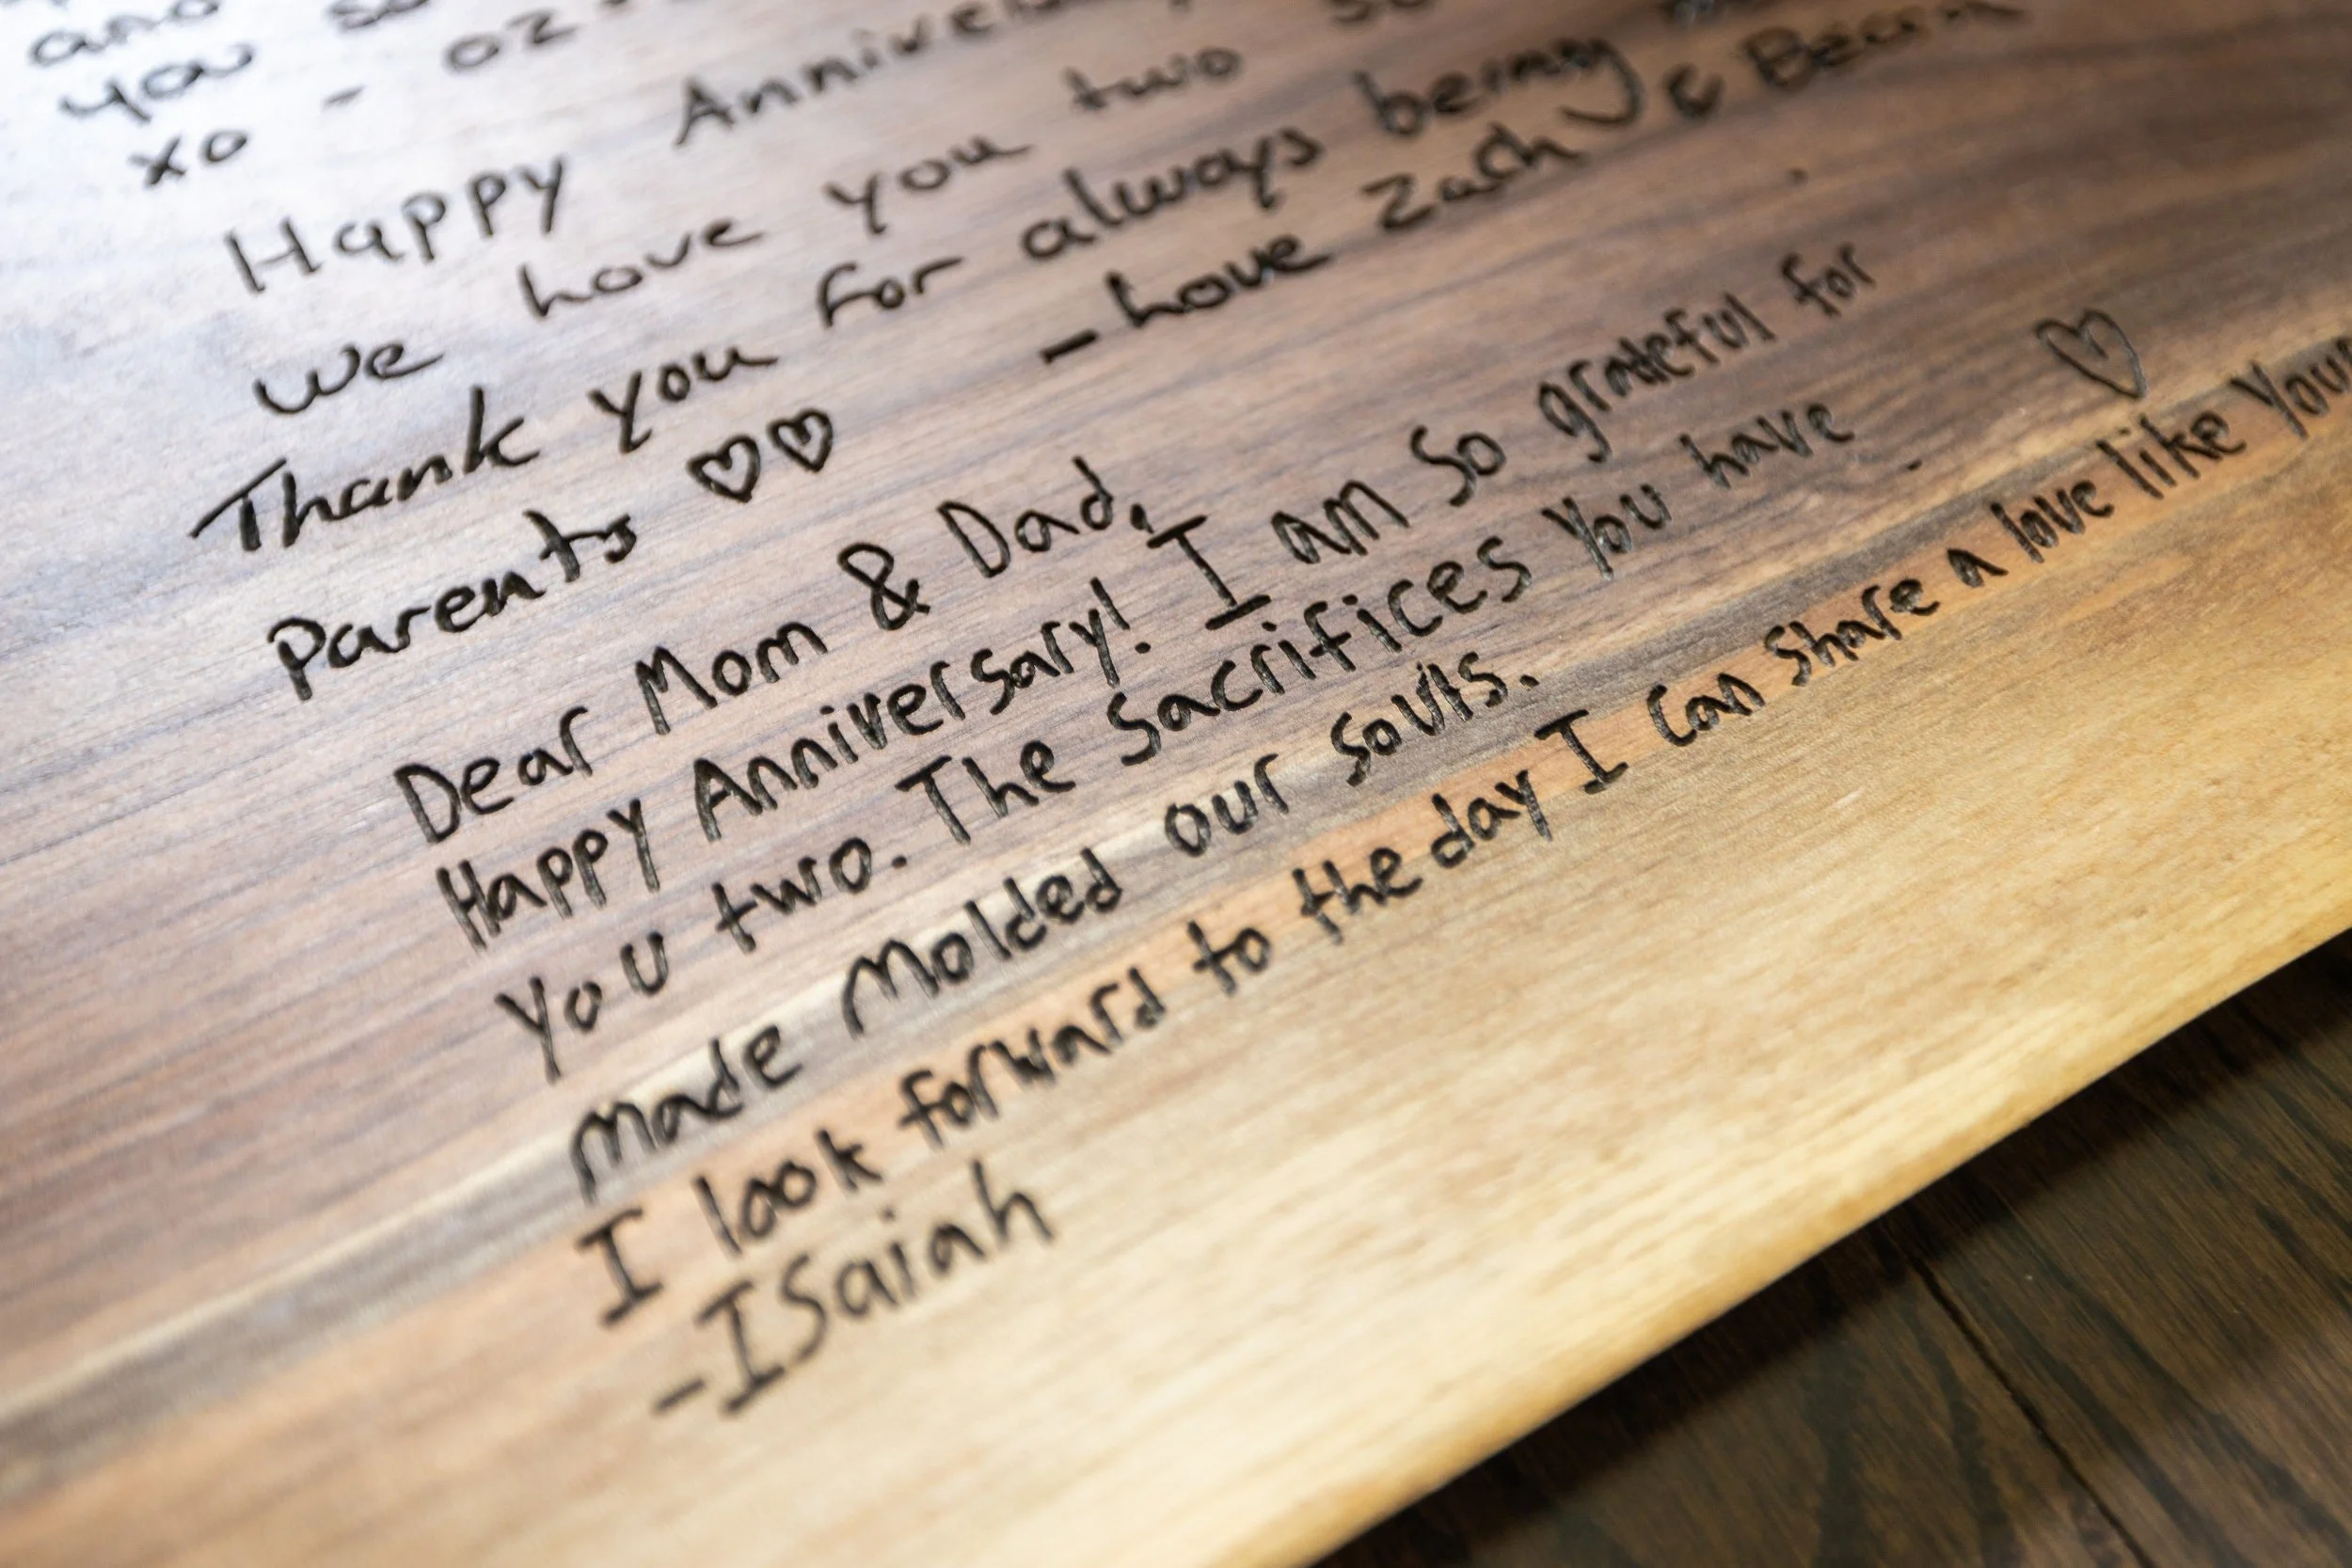 and
you so
xo - oz
Happy Anniver
we have you two so
Thank you for always being
Parents ♡♡
- Love Zach &
Dear Mom & Dad,
Happy Anniversary! I am so grateful for
you two. The sacrifices you have
made molded our souls.
I look forward to the day I can share a love like your
♡
-Isaiah